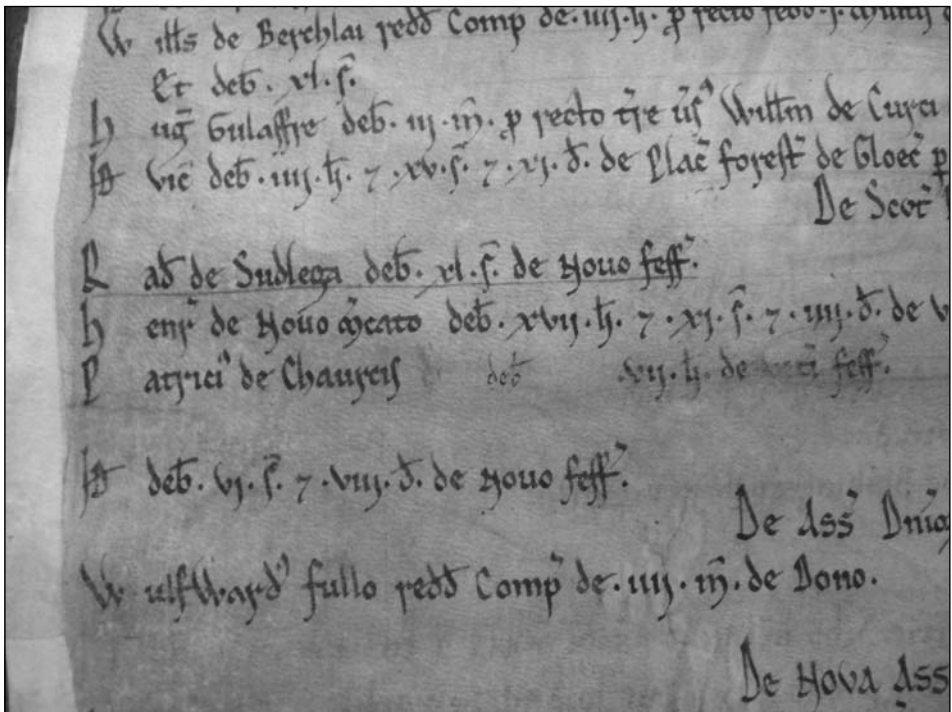 Witts de Berchlai redđ Comp de .iiij. li. ꝑ recto
Et deb̄. xl. s̄.
hug̃ Gulaffre deb̄. iij. m̄. ꝑ recto t̃re ūs' Willm̄ de Curci
Id vic̄ deb̄. iiij. li. ⁊ .xv. s̄. ⁊ .xj. đ. de Plac̃ forest̃ de Gloec̃ ꝑ
De Scot̃
Rađ de Sudlega deb̄. xl. s̄. de Nouo feff̃.
henr̃ de Nouo m̃cato deb̄. xvij. li. ⁊ .xj. s̄. ⁊ .iiij. đ. de
Patrici' de Chaurcis deb̄ .vij. li. de feff̃.
Id deb̄. vj. s̄. ⁊ .viij. đ. de Nouo feff̃.
De Ass̃ Dn̄io
WulfWard' fullo redđ Comp̃ de .iiij. m̄. de Dono.
De Nova Ass